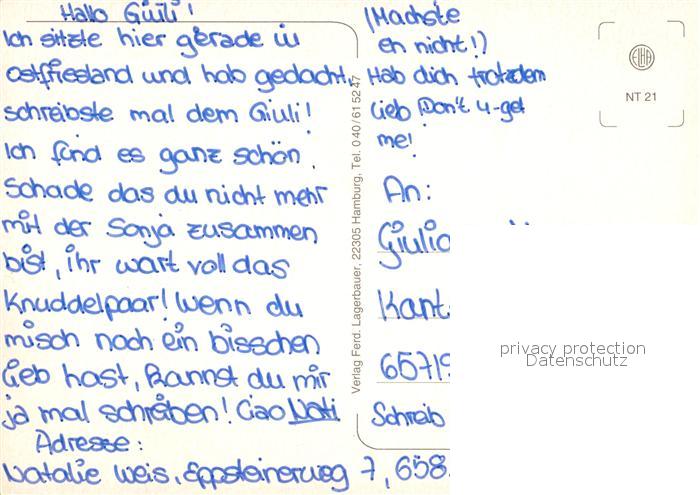 Hallo Giuli!
Ich sitzte hier gerade in
Ostfriesland und hab gedacht,
schreibste mal dem Giuli!
Ich find es ganz schön
Schade das du nicht mehr
mit der Sonja zusammen
bist, ihr wart voll das
Knuddelpaar! Wenn du
misch noch ein bisschen
lieb hast, kannst du mir
ja mal schreiben! Ciao Nati
Adresse:
Natalie Weis, Eppsteinerweg 7, 658
Verlag Ferd. Lagerbauer, 22305 Hamburg, Tel. 040/61 52 47
(Machste
eh nicht!)
Hab dich trotzdem
lieb Don't 4-get
me!
An:
Giulio
Kant
65719
Schreib
ELHA
NT 21
privacy protection
Datenschutz